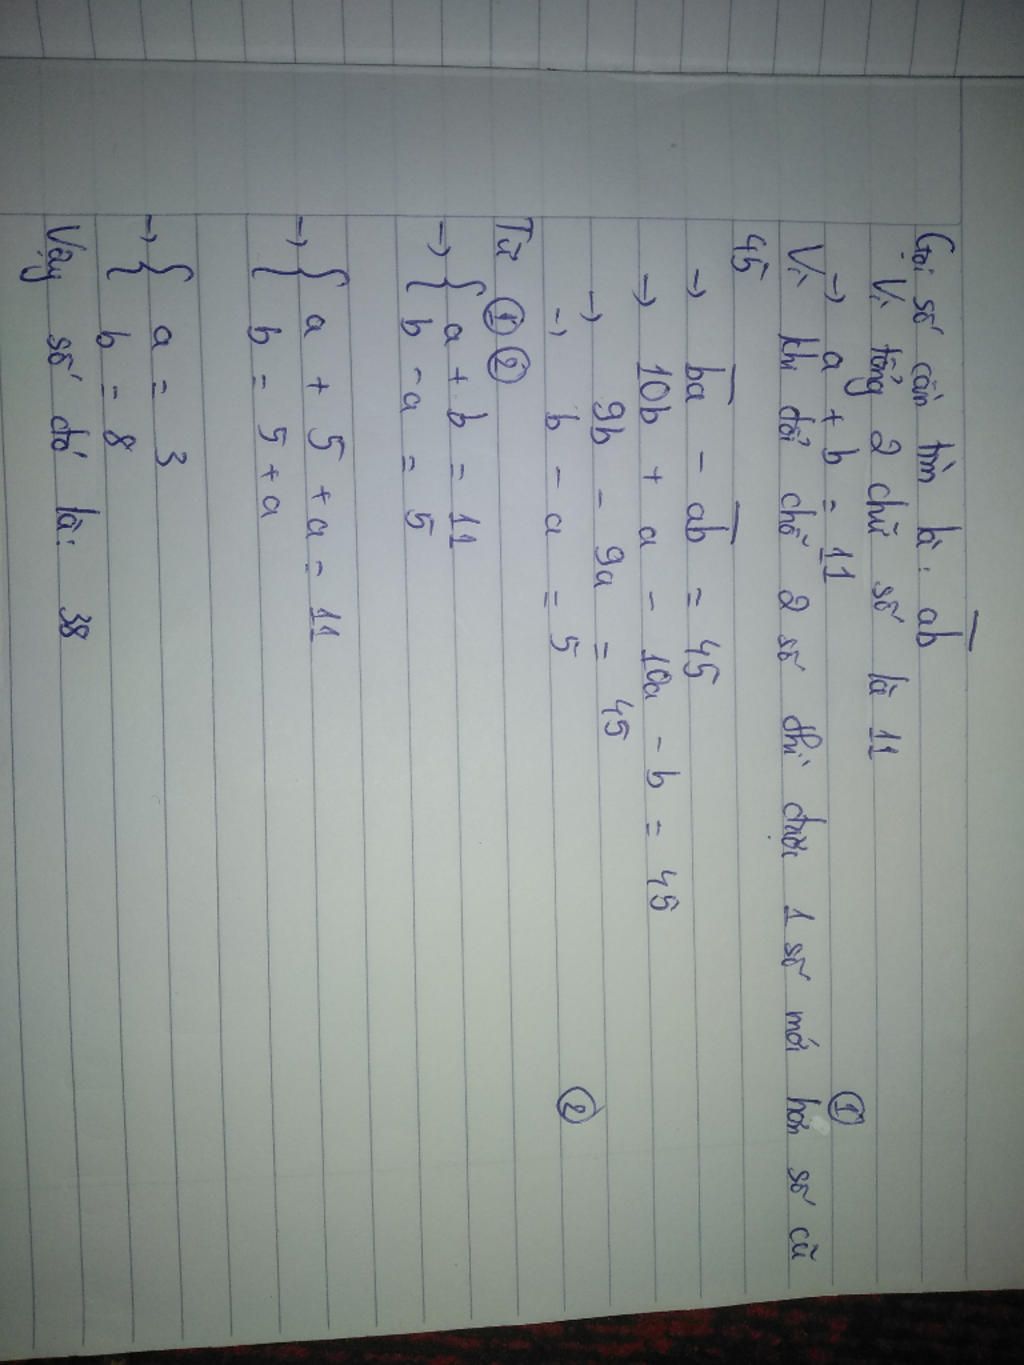 Gọi số cần tìm là: ab
Vì tổng 2 chữ số là 11
→ a + b = 11 ①
Vì khi đổi chỗ 2 số thì được 1 số mới hơn số cũ
45
→ ba - ab = 45
→ 10b + a - 10a - b = 45
→ 9b - 9a = 45
→ b - a = 5 ②
Từ ① ②
→ { a + b = 11
b - a = 5
→ { a + 5 + a = 11
b = 5 + a
→ { a = 3
b = 8
Vậy số đó là: 38